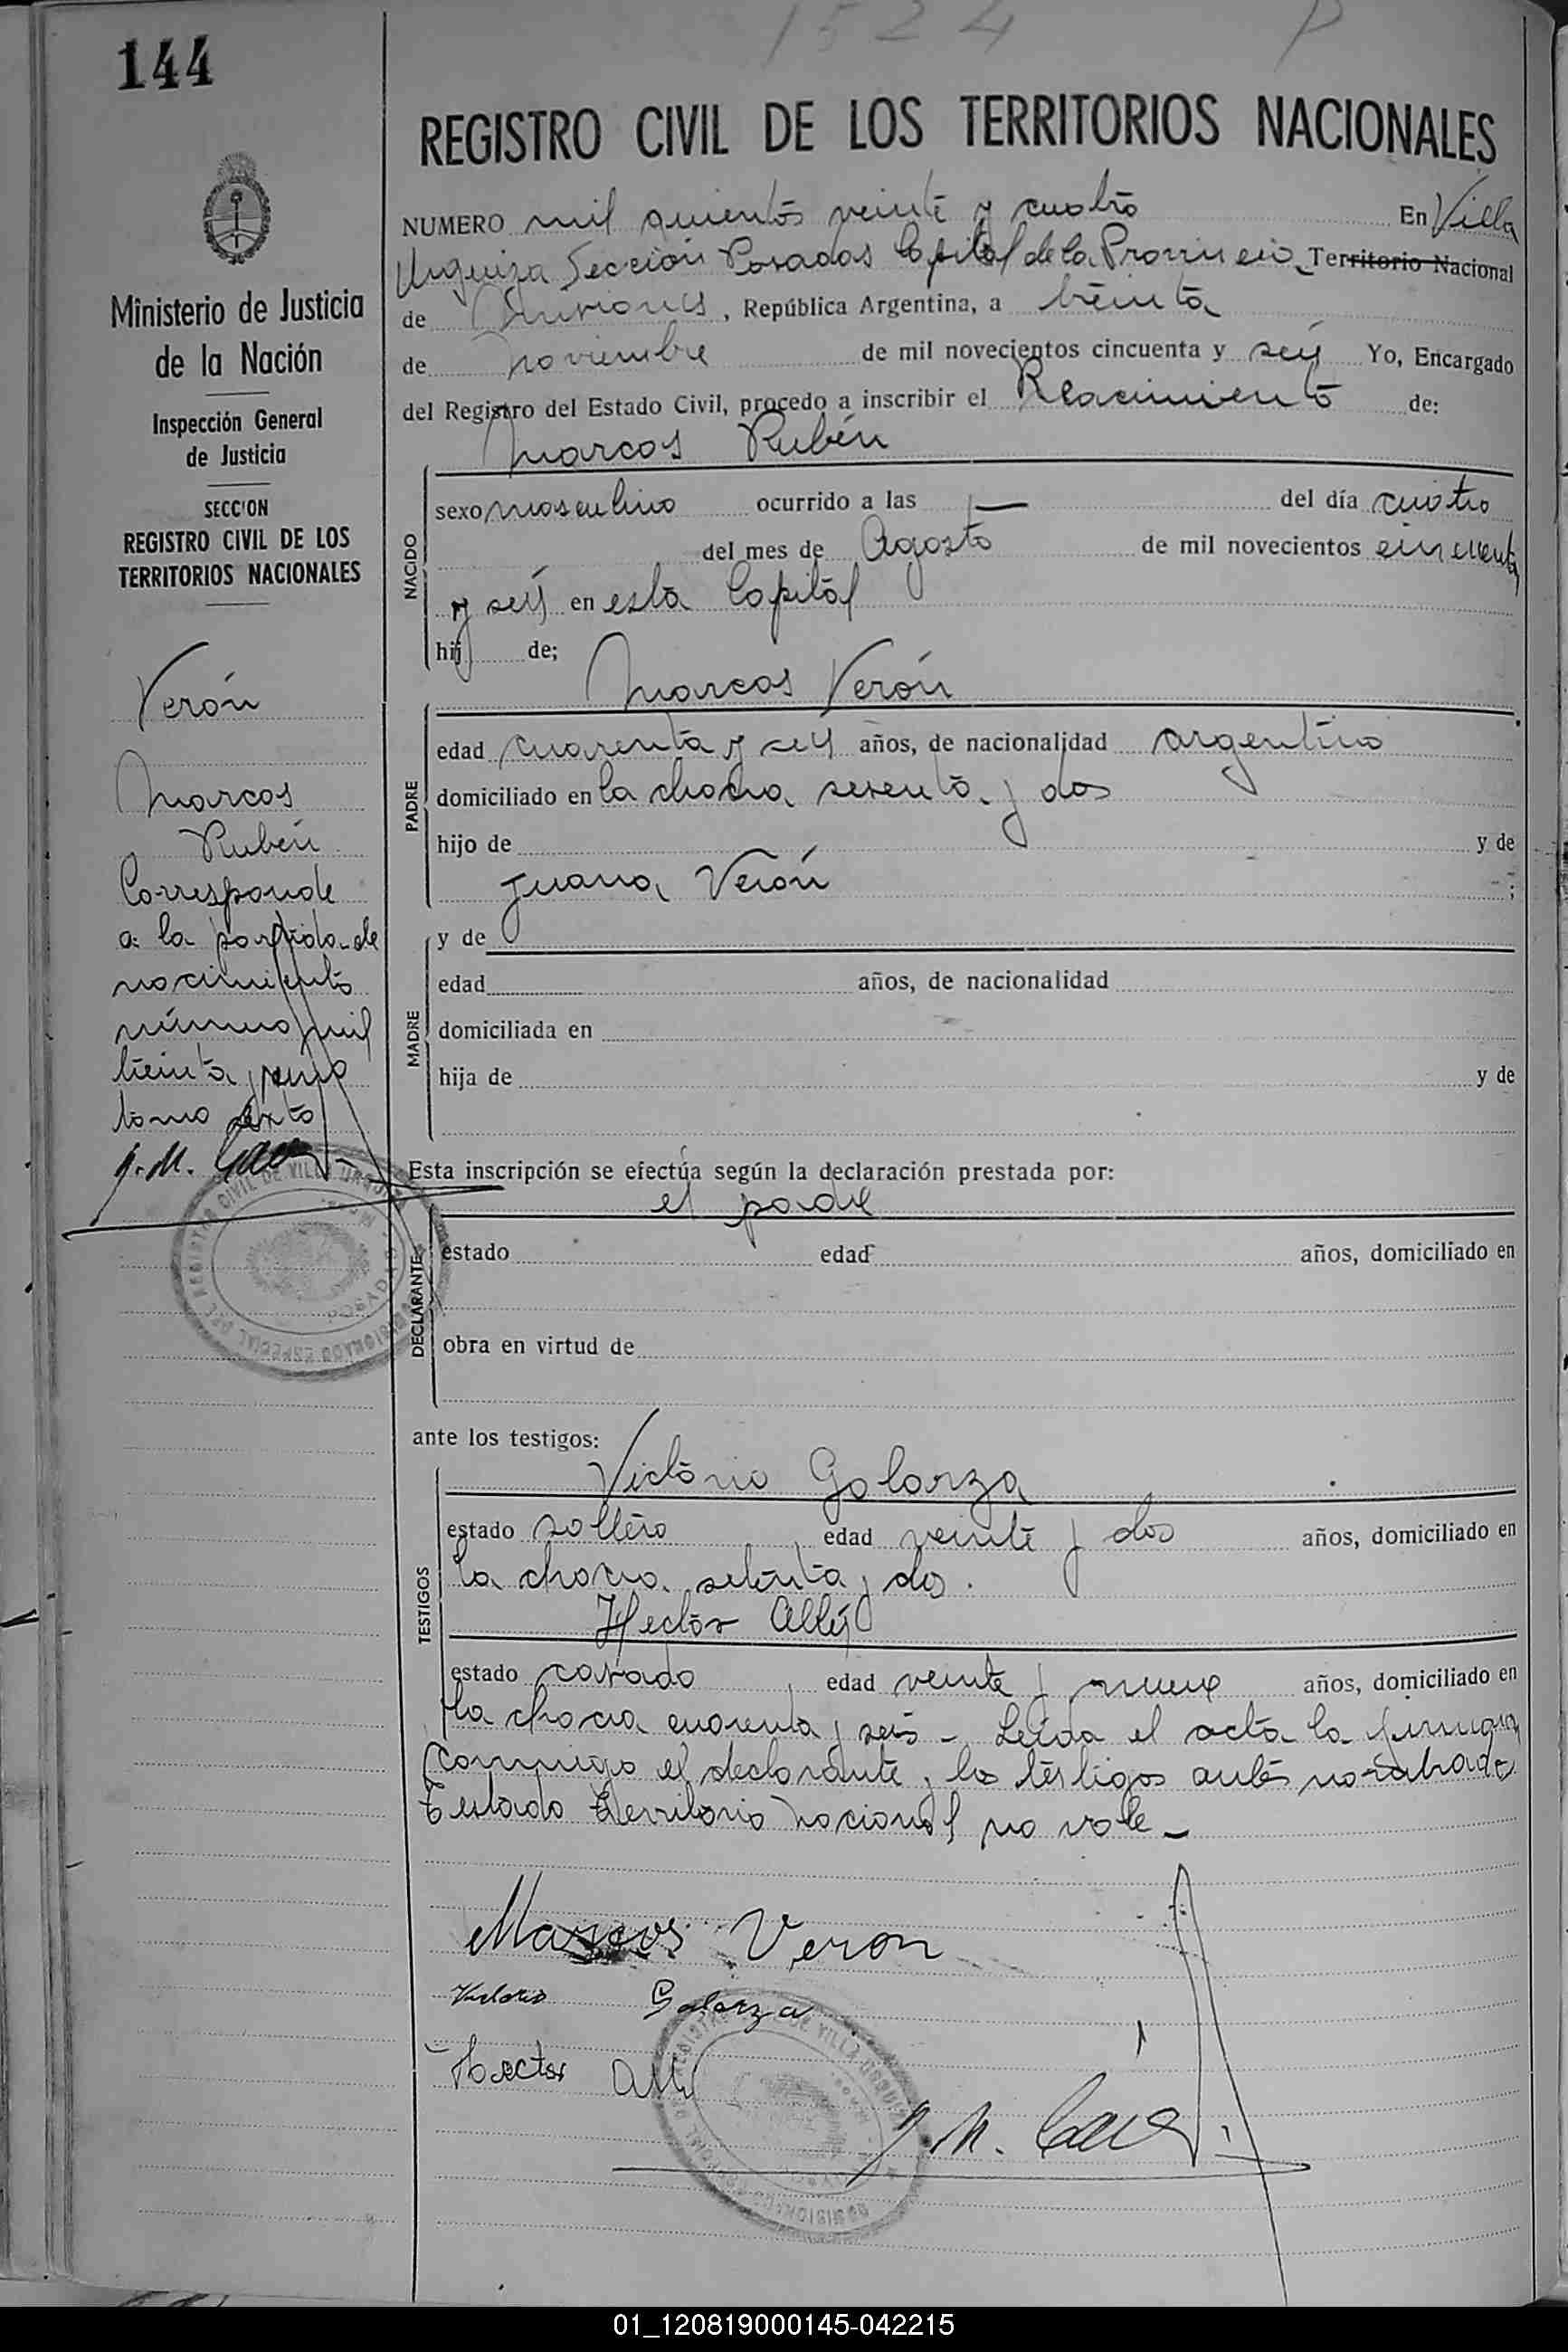 1524 P
144
REGISTRO CIVIL DE LOS TERRITORIOS NACIONALES
NUMERO mil quientos veinte y cuatro En Villa
Urquiza Sección Posadas Capital de la Provincia Territorio Nacional
de Misiones, República Argentina, a treinta
de Noviembre de mil novecientos cincuenta y seis Yo, Encargado
del Registro del Estado Civil, procedo a inscribir el de:
Marcos Rubén
NACIDO
sexo masculino ocurrido a las — del día cuatro
del mes de Agosto de mil novecientos cincuenta
y seis en esta Capital
hij de;
Marcos Verón
PADRE
edad cuarenta y seis años, de nacionalidad argentino
domiciliado en la chacra setenta y dos
hijo de y de
Juana Verón ;
MADRE
y de
edad años, de nacionalidad
domiciliada en
hija de y de
Esta inscripción se efectúa según la declaración prestada por:
el padre
DECLARANTE
estado edad años, domiciliado en
obra en virtud de
ante los testigos:
Victorio Galarza
TESTIGOS
estado soltero edad veinte y dos años, domiciliado en
la chacra setenta y dos.
Hector
estado casado edad veinte y nueve años, domiciliado en
la chacra cuarenta y seis - Leída el acta la firman
conmigo el declarante y los testigos antes
Testado Territorio Nacional no vale -
Marcos Veron
Victorio Galarza
Hector
J. M.
Ministerio de Justicia
de la Nación
Inspección General
de Justicia
SECCION
REGISTRO CIVIL DE LOS
TERRITORIOS NACIONALES
Verón
Marcos
Rubén
Corresponde
a la partida de
nacimiento
número mil
treinta y uno
tomo sexto
J. M.
01_120819000145-042215